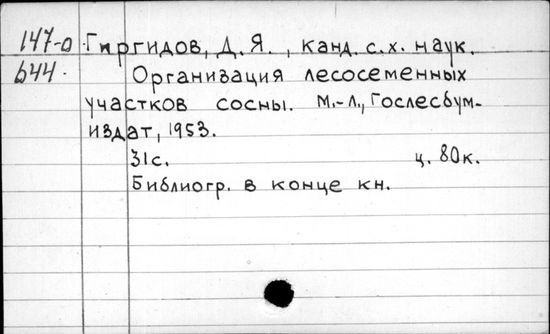 147-о Гиргидов, Д. Я., канд. с.х. наук.
644. Организация лесосеменных
участков сосны. М.-Л., Гослесбум-
издат, 1953.
31с. ц. 80к.
Библиогр. в конце кн.